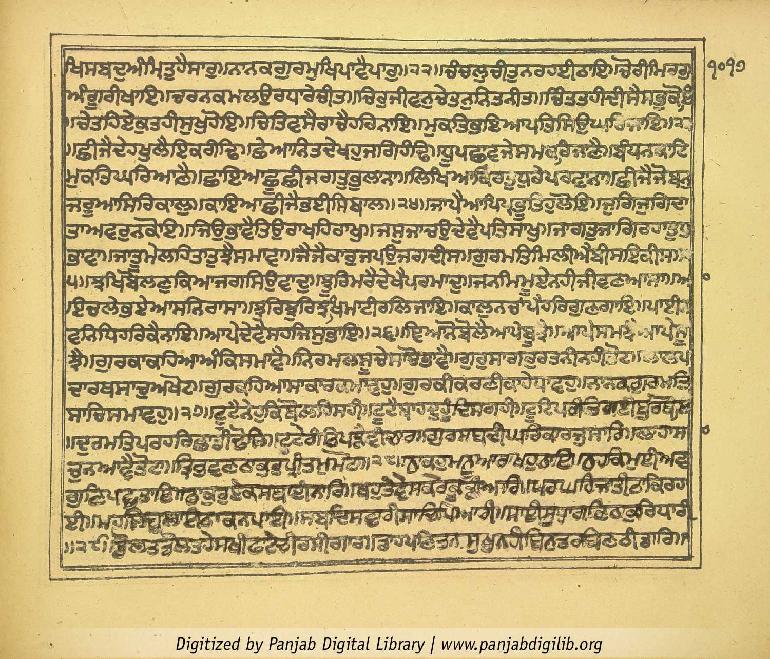 ਖਿਸਬਦੁਅੰਮ੍ਰਿਤੁਹੈਸਾਰੁ॥ਨਾਨਕਗੁਰਮੁਖਿਪਾਵੈਪਾਰੁ॥੨੨॥ਚੰਚਲੁਚੀਤੁਨਰਹਈਠਾਇ॥ਚੋਰੀਮਿਰਗੁ
੧੦੧੭
ਅੰਗੂਰੀਖਾਇ॥ਚਰਨਕਮਲਉਰਧਾਰੇਚੀਤ॥ਚਿਰੁਜੀਵਨੁਚੇਤਨੁਨਿਤਨੀਤ॥ਚਿੰਤਤਹੀਦੀਸੈਸਭੁਕੋਇ
॥ਚੇਤਹਿਏਕੁਤਹੀਸੁਖੁਹੋਇ॥ਚਿਤਿਵਸੈਰਾਚੈਹਰਿਨਾਇ॥ਮੁਕਤਿਭਇਆਪਤਿਸਿਉਘਰਿਜਾਇ॥੨੩
॥ਛੀਜੈਦੇਹਖੁਲੈਇਕਗੰਢਿ॥ਛੇਆਨਿਤਦੇਖਹੁਜਗਿਹੰਢਿ॥ਧੂਪਛਾਵਜੇਸਮਕਰਿਜਾਣੈ॥ਬੰਧਨਕਾਟਿ
ਮੁਕਤਿਘਰਿਆਣੈ॥ਛਾਇਆਛੂਛੀਜਗਤੁਭੁਲਾਨਾ॥ਲਿਖਿਆਕਿਰਤੁਧੁਰੇਪਰਵਾਨਾ॥ਛੀਜੈਜੋਬਨੁ
ਜਰੂਆਸਿਰਿਕਾਲੁ॥ਕਾਇਆਛੀਜੈਭਈਸਿਬਾਲੁ॥੨੪॥ਜਾਪੈਆਪਿਪ੍ਰਭੂਤਿਹੁਲੋਇ॥ਜੁਗਿਜੁਗਿਦਾ
ਤਾਅਵਰੁਨਕੋਇ॥ਜਿਉਭਾਵੈਤਿਉਰਾਖਹਿਰਾਖੁ॥ਜਸੁਜਾਚਉਦੇਵੈਪਤਿਸਾਖੁ॥ਜਾਗਤੁਜਾਗਿਰਹਾਤੁਧੁ
ਭਾਵਾ॥ਜਾਤੂਮੇਲਹਿਤਾਤੁਝੈਸਮਾਵਾ॥ਜੈਜੈਕਾਰੁਜਪਉਜਗਦੀਸ॥ਗੁਰਮਤਿਮਿਲੀਐਬੀਸਇਕੀਸ॥੨
੫॥ਝਖਿਬੋਲਣੁਕਿਆਜਗਸਿਉਵਾਦੁ॥ਝੂਰਿਮਰੈਦੇਖੈਪਰਮਾਦੁ॥ਜਨਮਿਮੂਏਨਹੀਜੀਵਣਆਸਾ॥ਆ
ਇਚਲੇਭਏਆਸਨਿਰਾਸਾ॥ਝੁਰਿਝੁਰਿਝਖਿਮਾਟੀਰਲਿਜਾਇ॥ਕਾਲੁਨਚਾਂਪੈਹਰਿਗੁਣਗਾਇ॥ਪਾਈਨ
ਵਨਿਧਿਹਰਿਕੈਨਾਇ॥ਆਪੇਦੇਵੈਸਹਜਿਸੁਭਾਇ॥੨੬॥ਞਿਆਨੋਬੋਲੈਆਪੇਬੂਝੈ॥ਆਪੇਸਮਝੈਆਪੇਸੂ
ਝੈ॥ਗੁਰਕਾਕਹਿਆਅੰਕਿਸਮਾਵੈ॥ਨਿਰਮਲਸੂਚੇਸਾਚੋਭਾਵੈ॥ਗੁਰੁਸਾਗਰੁਰਤਨੀਨਹੀਤੋਟ॥ਲਾਲਪ
ਦਾਰਥਸਾਚੁਅਖੋਟ॥ਗੁਰਕਹਿਆਸਾਕਾਰਕਮਾਵਹੁ॥ਗੁਰਕੀਕਰਣੀਕਾਹੇਧਾਵਹੁ॥ਨਾਨਕਗੁਰਮਤਿ
ਸਾਚਿਸਮਾਵਹੁ॥੨੭॥ਟੂਟੈਨੇਹੁਕਿਬੋਲਹਿਸਹੀ॥ਟੂਟੈਬਾਹਦੁਹੂਦਿਸਗਹੀ॥ਟੂਟਿਪਰੀਤਿਗਈਬੁਰਬੋਲਿ
॥ਦੁਰਮਤਿਪਰਹਰਿਛਾਡੀਢੋਲਿ॥ਟੂਟੈਗੰਠਿਪੜੈਵੀਚਾਰਿ॥ਗੁਰਸਬਦੀਘਰਿਕਾਰਜੁਸਾਰਿ॥ਲਾਹਾਸਾ
ਚੁਨਆਵੈਤੋਟਾ॥ਤ੍ਰਿਭਵਣਠਾਕੁਰੁਪ੍ਰੀਤਮੁਮੋਟਾ॥੨੮॥ਠਾਕਹੁਮਨੂਆਰਾਖਹੁਠਾਇ॥ਠਹਕਿਮੁਈਅਵ
ਗੁਣਿਪਛੁਤਾਇ॥ਠਾਕੁਰੁਏਕੁਸਬਾਈਨਾਰਿ॥ਬਹੁਤੇਵੇਸਕਰੇਕੂੜਿਆਰਿ॥ਪਰਘਰਿਜਾਤੀਠਾਕਿਰਹਾ
ਈ॥ਮਹਲਿਬੁਲਾਈਠਾਕਨਪਾਈ॥ਸਬਦਿਸਵਾਰੀਸਾਚਿਪਿਆਰੀ॥ਸਾਈਸੋੁਹਾਗਣਿਠਾਕੁਰਿਧਾਰੀ
॥੨੯॥ਡੋਲਤਡੋਲਤਹੇਸਖੀਫਾਟੇਚੀਰਸੀਗਾਰ॥ਡਾਹਪਣਿਤਨਿਸੁਖੁਨਹੀਬਿਨੁਡਰਬਿਣਠੀਡਾਰ॥
Digitized by Panjab Digital Library | www.panjabdigilib.org